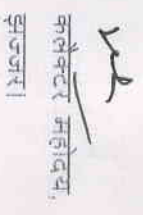 कलेक्टर महोदय,
झज्जर।